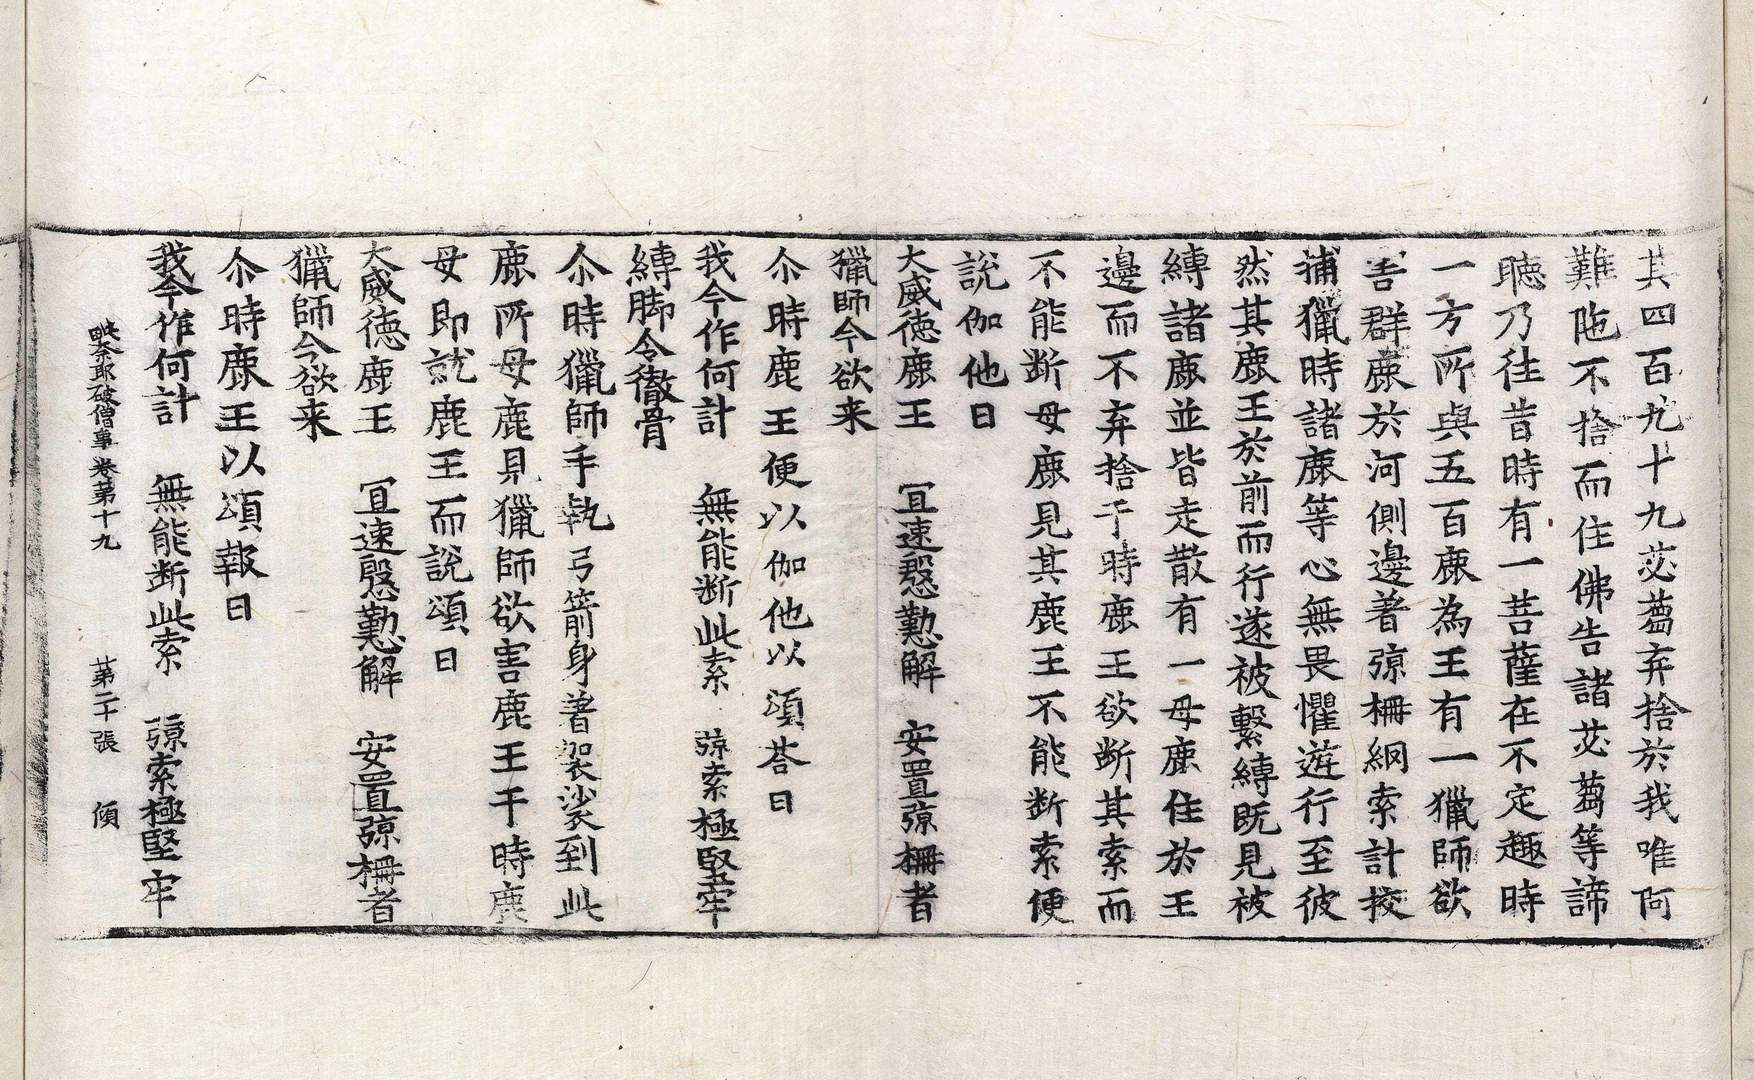 其四百九十九苾蒭弃捨於我唯阿
難陁不捨而住佛告諸苾蒭等諦
聴乃徃昔時有一菩薩在不定趣時
一方所與五百鹿為王有一獵師欲
害群鹿於河側邊著弶柵網索計挍
捕獵時諸鹿等心無畏懼遊行至彼
然其鹿王於前而行遂被繫縛既見被
縛諸鹿並皆走散有一母鹿住於王
邊而不弃捨于時鹿王欲断其索而
不能断母鹿見其鹿王不能断索便
說伽他曰
大威德鹿王　冝速慇懃解　安置弶柵者
獵師今欲来
尒時鹿王便以伽他以頌荅曰
我今作何計　無能断此索　弶索極堅牢
縛脚令徹骨
尒時獵師手執弓箭身著袈裟到此
鹿所母鹿見獵師欲害鹿王于時鹿
母即就鹿王而說頌曰
大威德鹿王　冝速慇懃解　安置弶柵者
獵師今欲来
尒時鹿王以頌報曰
我今作何計　無能断此索　弶索極堅牢
毗柰耶破僧事卷第十九　第二十張　傾